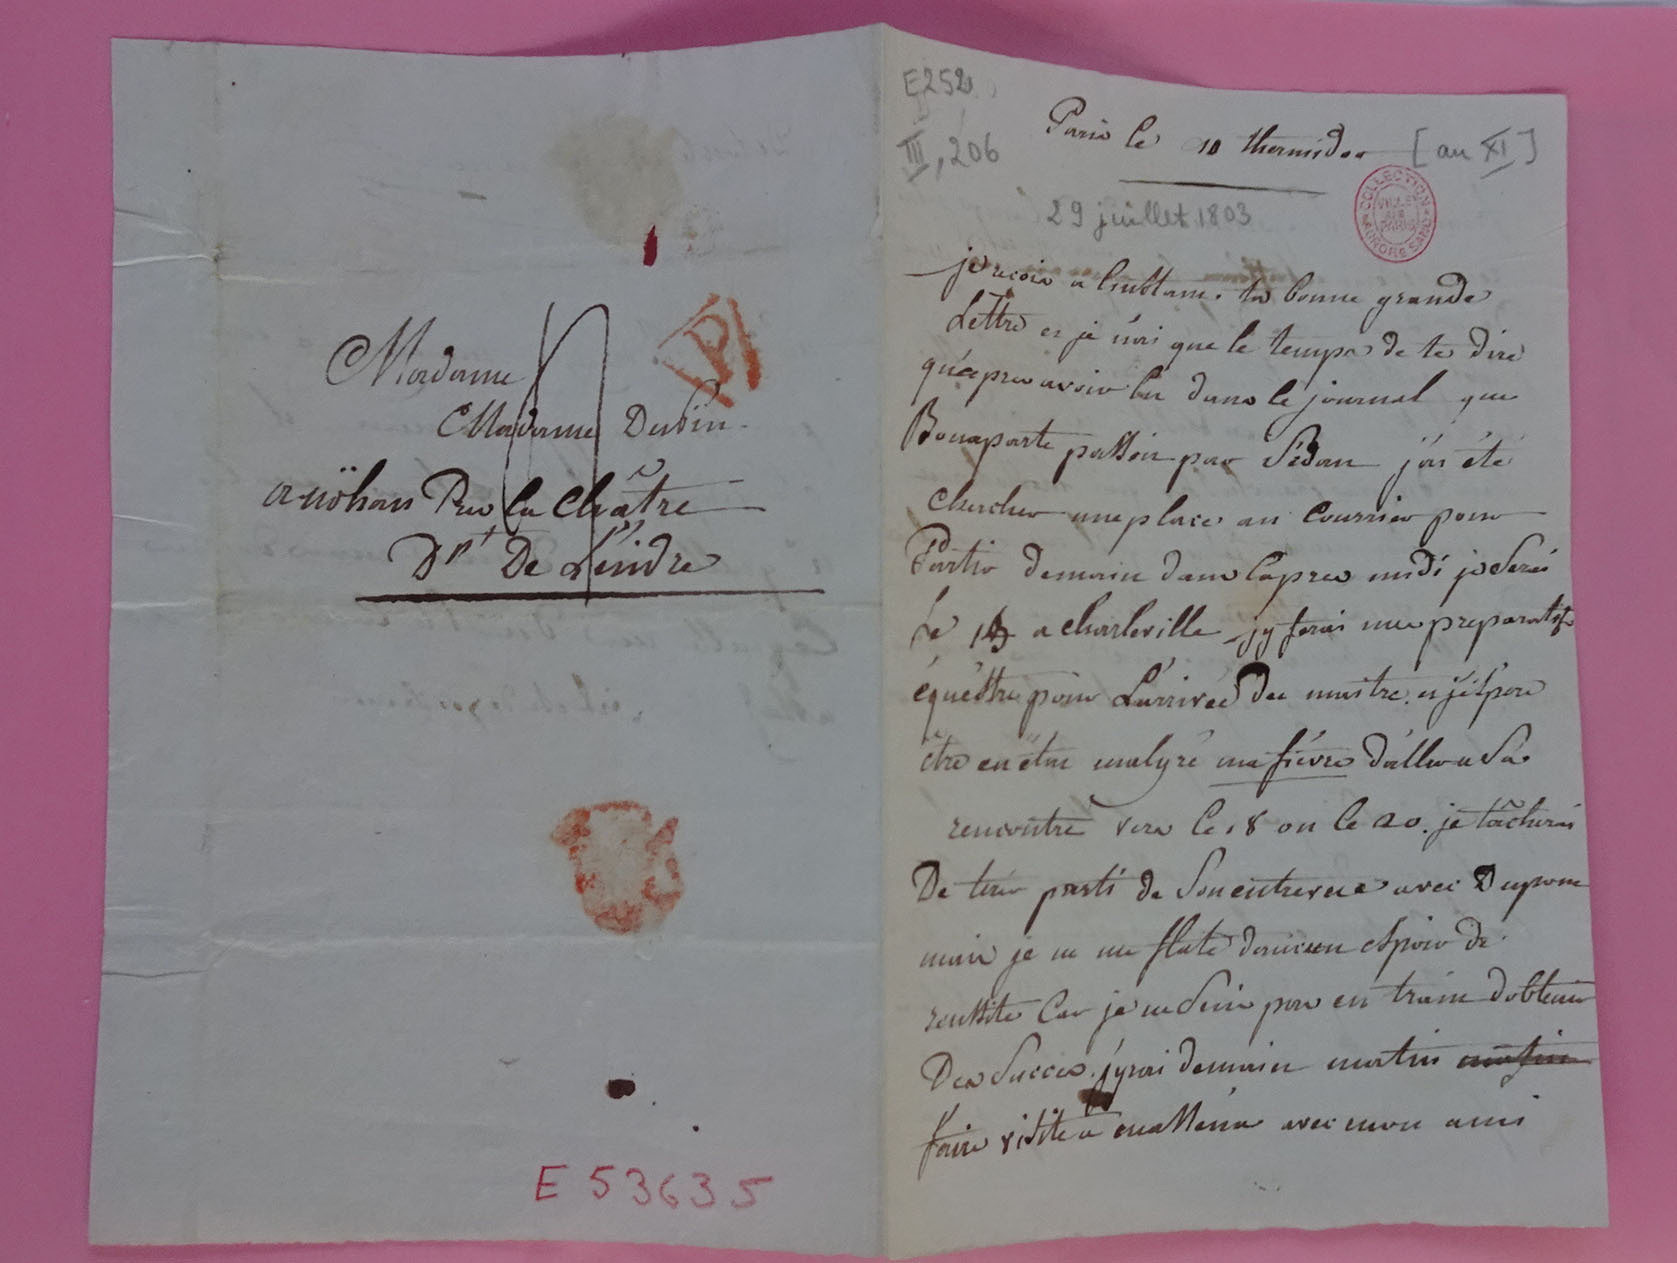 Madame
Madame Dupin
a nöhan Pres la Châtre
Dpt De L'éindre
P
E 53635
E252
III, 206
Paris le 10 thermidor [an XI]
29 juillet 1803
COLLECTION AURORE SAND VILLE DE PARIS
je recois a linstant. ta bonne grande
Lettre et je n'ai que le temps de te dire
qu'apres avoir lu dans le journal que
Bonaparte passoit par Sedan j'ai été
chercher une place au Courrier pour
Partir demain dans lapres midi je serai
Le a charleville j'y ferai mes preparatifs
équéstre pour L'arrivée du maitre et j'éspere
être en état malgré ma fiévre d'aller a sa
rencontre vers le 18 ou le 20. je tâcherai
De tirer parti de son entrevue avec Dupont
mais je ne me flate d'aucun espoir de
reussite Car je ne suis pas en train d'obtenir
Des succes. j'yrai demain matin matin
faire visite a masséna avec mon ami